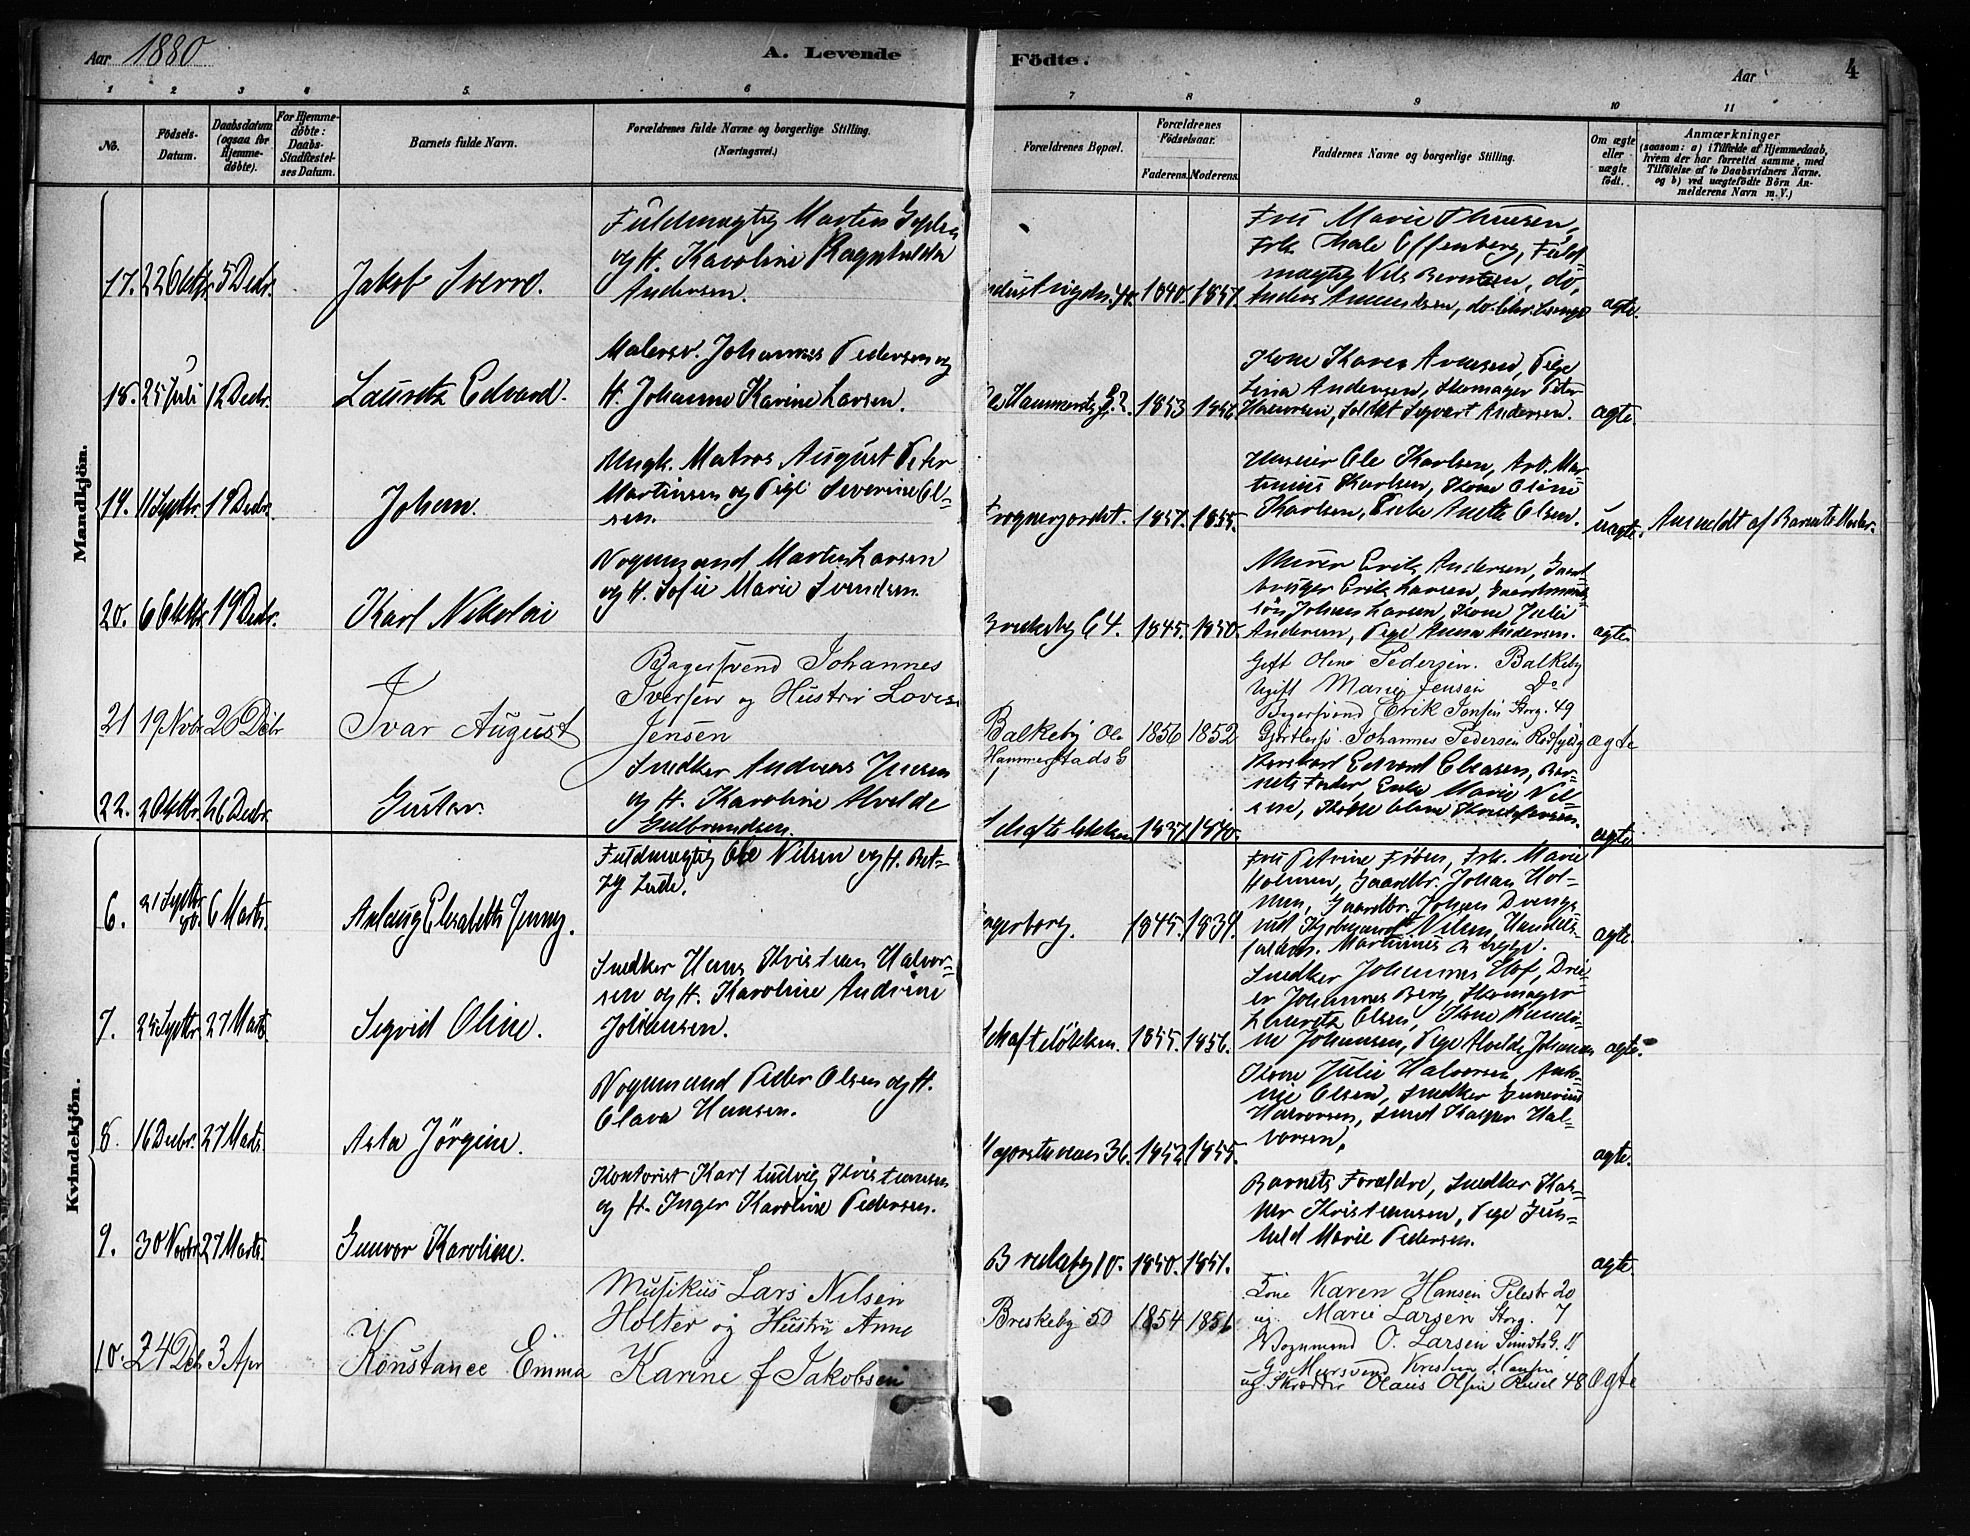 Aar 1880
A. Levende
Födte.
Aar
4
1 2 3 4 5. 6
7 8 9 10 11
No.
Födsels-
Datum.
Daabsdatum
(ogsaa for
Hjemme-
döbte).
For Hjemme-
döbte:
Daabs-
Stadfæstel-
ses Datum.
Barnets fulde Navn.
Forældrenes fulde Navne og borgerlige Stilling.
(Næringsvei.)
Forældrenes Bopæl.
Forældrenes
Födselsaar.
Faderens. Moderens.
Faddernes Navne og borgerlige Stilling.
Om ægte
eller
uægte
födt.
Anmærkninger
(saasom: a) i Tilfælde af Hjemmedaab,
hvem der har forrettet samme, med
Tilföielse af to Daabsvidners Navne.
og b) ved uægtefödte Börn An-
melderens Navn m. V.)
Mandkjön.
17. 22 Oktbr. 5 Decbr. Jakob Sverre.
Fuldmægtig Morten
og H. Karoline Ragnhilda
Andersen.
40. 1840. 1857.
Fru Marie Thuesen,
Frk. Offenberg, Fuld-
mægtig Nils Berntsen, do.
Anders Amundsen, do. Chr.
ægte.
18. 25 Juli 12 Decbr. Lauritz Edvard.
Malersv. Johannes Pedersen og
H. Johanne Karine Larsen.
1853
Kone Karen Pige
Lina Andersen, Skomager Peter
Halvorsen, Soldat Sigvart Andersen.
ægte.
19. 11 Septbr. 19 Decbr. Johan.
Ungk. Matros August Peter
Martinsen og Pige Severine Ol-
sen.
Frognerjordet. 1857. 1855.
Ole Karlsen, Arb. Mar-
tinius Karlsen, Kone Oline
Karlsen, Enke Anette Olsen.
uægte. Anmeldt af Barnets Moder.
20. 6 Oktbr. 19 Decbr. Karl Nikolai
Vognmand Martin Larsen
og H. Sofie Marie Svendsen.
Briskeby 64. 1845. 1850.
Murer Erik Andersen, Gaard-
bruger Erik Larsen, Gaardmands-
søn Johan Larsen, Kone Julie
Andersen, Pige Anna Andersen.
ægte.
21 19 Novbr 26 Dcbr Ivar August
Bagersvend Johannes
Iversen og Hustru Lovise
Jensen
Balkeby Ole
Hammerstads G
1
1856 1852
Gift Olene Pedersen. Balkeby
Ugift Marie Jensen Do
Bagersvend Erik Storg. 49
Johannes Pedersen
ægte
22. 2 Oktbr. 26 Decbr. Gustav.
Snedker Andreas Jensen
og H. Karoline Alvilde
Gulbrandsen.
1837. 1840.
Edvard Bar-
nets Fader, Enke Marie Nil-
sen, Kone Oline
ægte.
Kvindekjön.
6. 21 Septbr. 6 Marts. Aslaug Elisabeth Jenny.
Fuldmægtig Ole Nilsen og H. Bet-
zy
1845. 1839.
Fru Petrine Frk. Marie
Holmen, Gaardbr. Johan Hol-
men, Gaardbr. Johan
Kjøbmand Nilsen, Handels-
Martinius
ægte.
7. 25 Septbr. 27 Marts. Sigrid Oline.
Snedker Hans Kristian Halvor-
sen og H. Karoline Andrine
Johansen.
Schafteløkken. 1855. 1856.
Snedker Johannes Drei-
er Johannes Berg, Skomager
Lauritz Olsen, Kone
Johansen, Pige Alvilde Johansen
ægte.
8. 16 Decbr. 27 Marts Asta Jörgine.
Vognmand Peder Olsen og H.
Olava Hansen.
Majorstuveien 36. 1852. 1855.
Kone Julie Halvorsen,
Olsen, Snedker
Halvorsen, Smed Kasper Hal-
vorsen,
ægte.
9. 30 Novbr. 27 Marts. Gunvor Karoline.
Kontorist Karl Ludvig Kristiansen
og H. Inger Karoline Pedersen.
Briskeby 10. 1850. 1851.
Barnets Forældre, Snedker Kas-
per Kristiansen, Pige Gun-
hild Marie Pedersen.
ægte.
10. 24 Dcb 3 Apr Konstance Emma
Musikus Lars Nilsen
Holter og Hustru Anne
Karine f Jakobsen
Breskeby 50 1854 1856
Kone Karen Hansen Pilestr 20
ug Marie Larsen Storg. 7
Vognmand O. Larsen SmidtsG. 11
G. Kristian Hansen
ug Skrædder Olaus Olsen 48
ægte